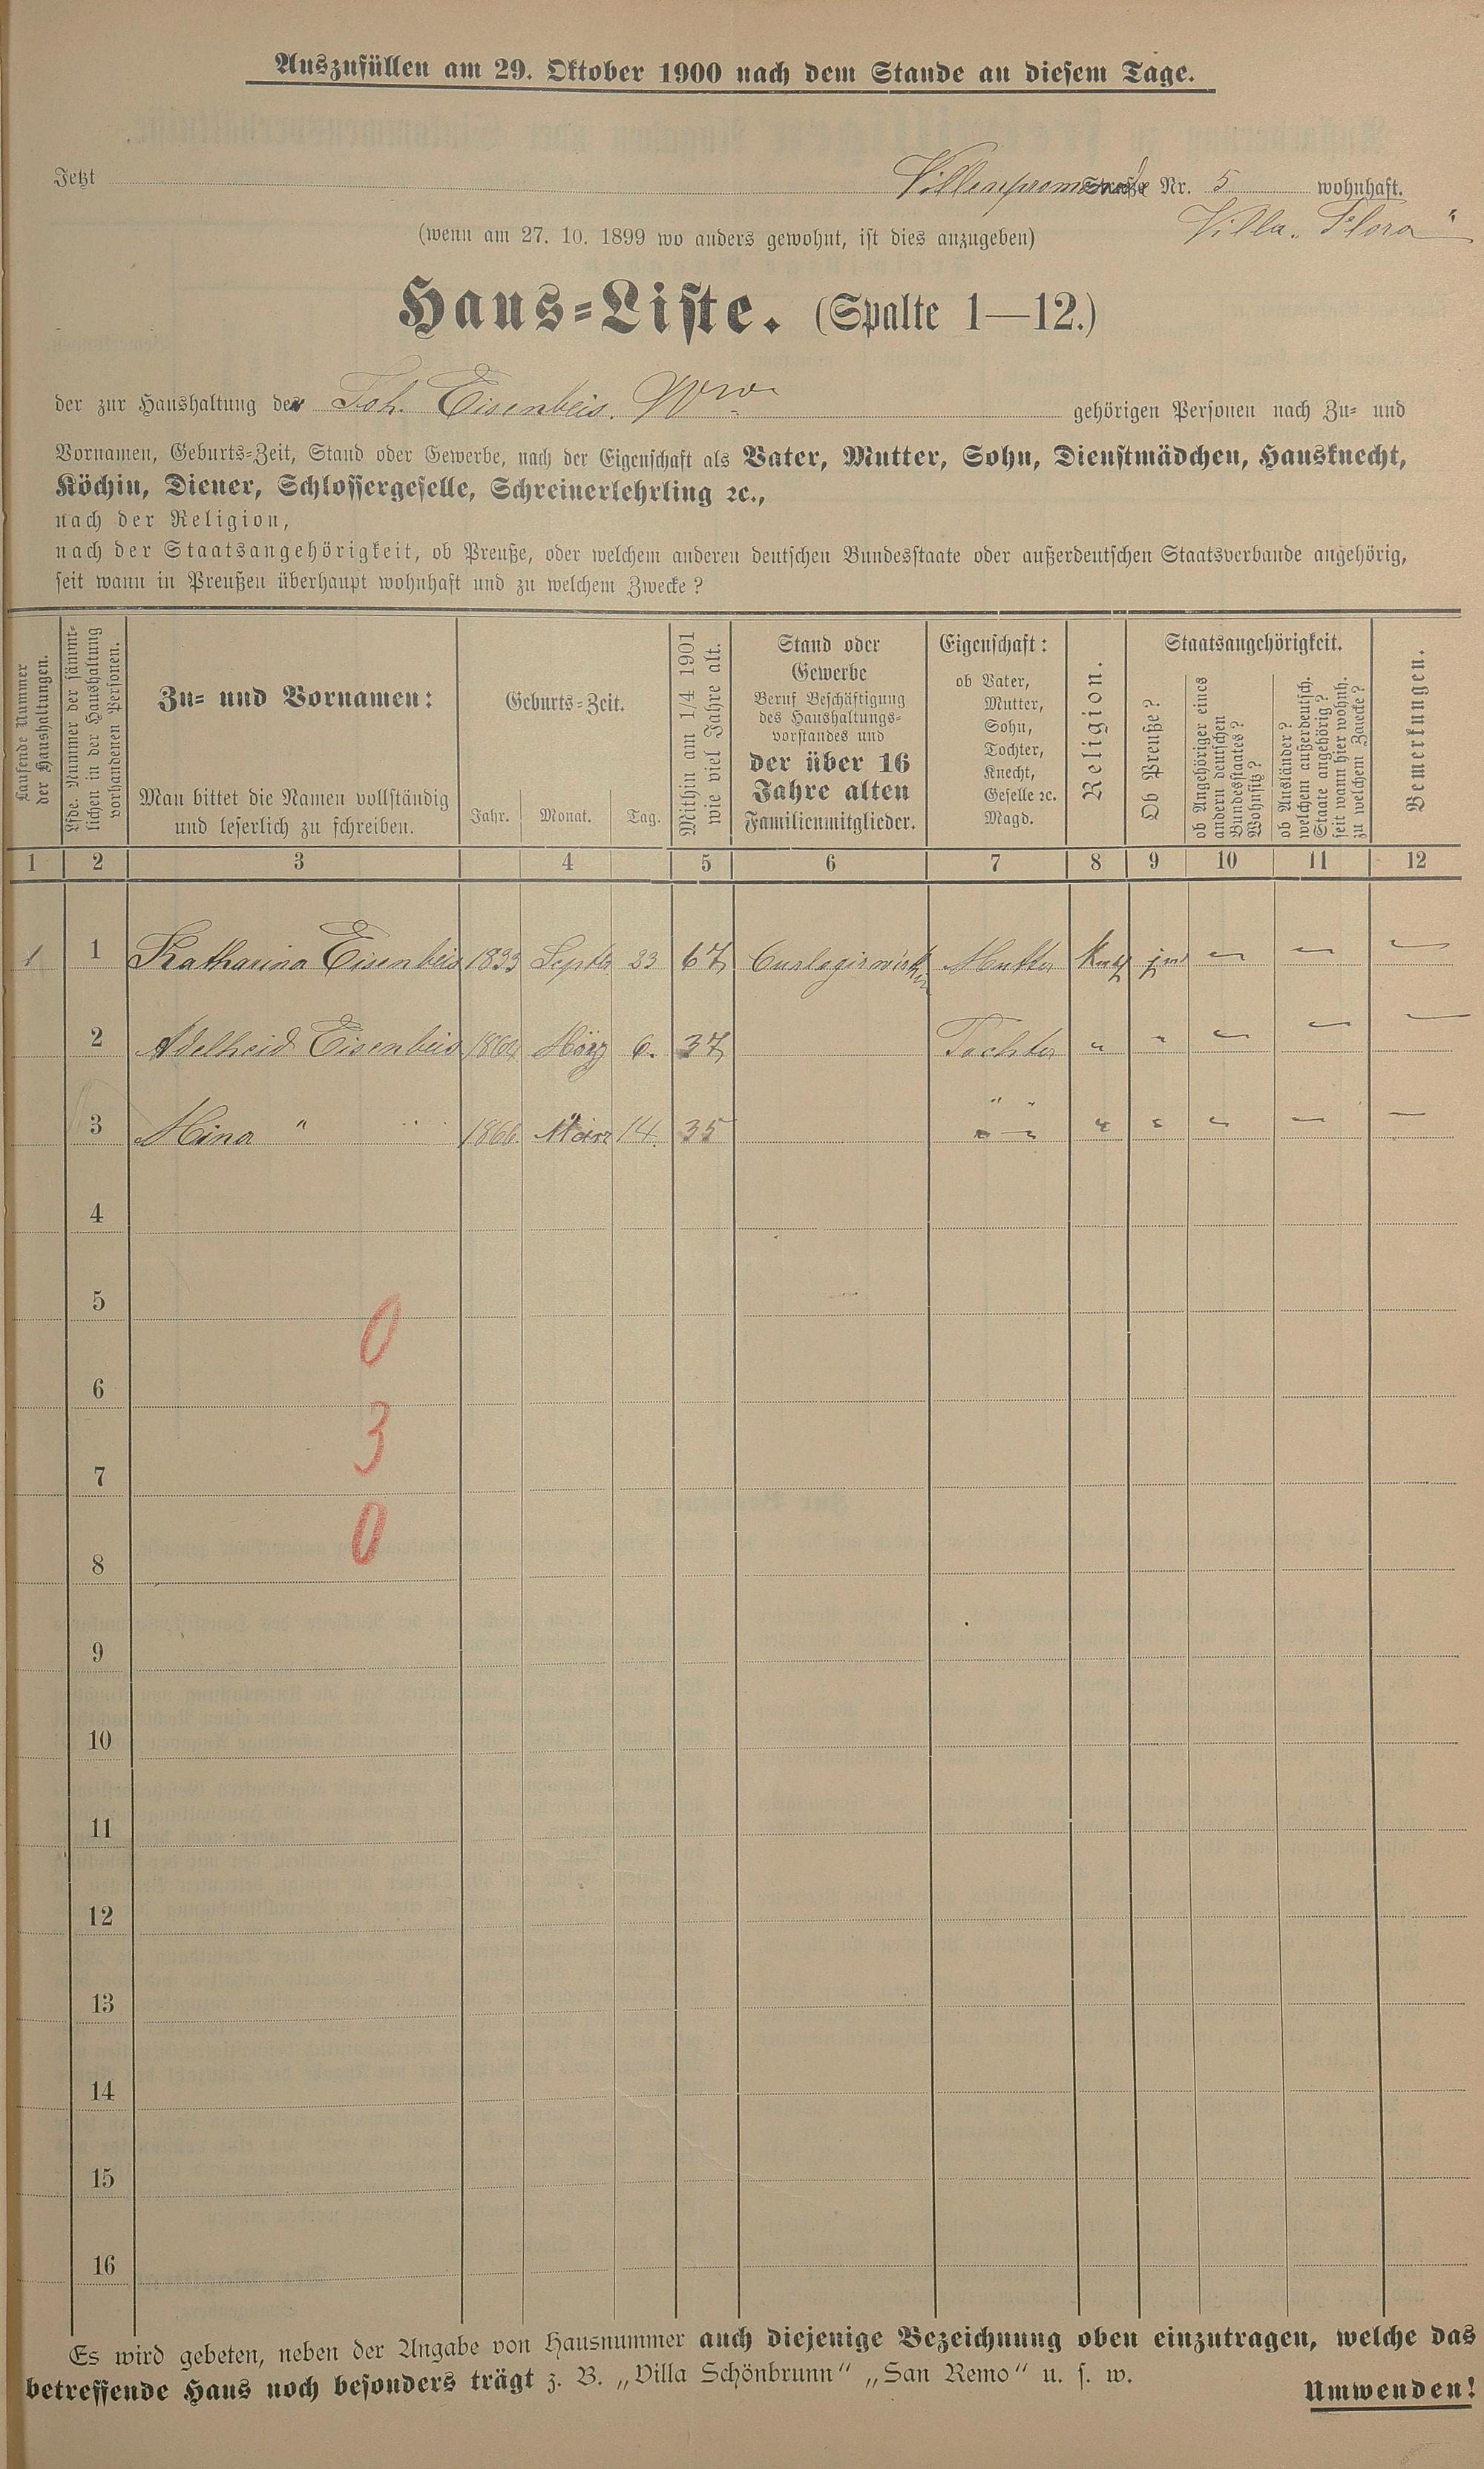 Auszufüllen am 29. Oktober 1900 nach dem Stande an diesem Tage.
Jetzt Villenprom Straße Nr. 5 wohnhaft.
(wenn am 27. 10. 1899 wo anders gewohnt, ist dies anzugeben) Villa „Flora“
Haus=Liste. (Spalte 1—12.)
der zur Haushaltung der Joh. Eisenbeis. Wwe gehörigen Personen nach Zu= und
Vornamen, Geburts=Zeit, Stand oder Gewerbe, nach der Eigenschaft als Vater, Mutter, Sohn, Dienstmädchen, Hausknecht,
Köchin, Diener, Schlossergeselle, Schreinerlehrling ꝛc.,
nach der Religion,
nach der Staatsangehörigkeit, ob Preuße, oder welchem anderen deutschen Bundesstaate oder außerdeutschen Staatsverbande angehörig,
seit wann in Preußen überhaupt wohnhaft und zu welchem Zwecke?
Laufende Nummer
der Haushaltungen.
Lfde. Nummer der sämmt-
lichen in der Haushaltung
vorhandenen Personen.
Zu= und Vornamen:
Man bittet die Namen vollständig
und leserlich zu schreiben.
Geburts=Zeit.
Jahr. Monat. Tag.
Mithin am 1/4 1901
wie viel Jahre alt.
Stand oder
Gewerbe
Beruf Beschäftigung
des Haushaltungs=
vorstandes und
der über 16
Jahre alten
Familienmitglieder.
Eigenschaft:
ob Vater,
Mutter,
Sohn,
Tochter,
Knecht,
Geselle ꝛc.
Magd.
Religion.
Staatsangehörigkeit.
Ob Preuße?
ob Angehöriger eines
andern deutschen
Bundesstaates?
Wohnsitz?
ob Ausländer?
welchem außerdeutsch.
Staate angehörig?
seit wann hier wohnh.
zu welchem Zwecke?
Bemerkungen.
1 2 3 4 5 6 7 8 9 10 11 12
1 1 Katharina Eisenbeis 1833 Septbr 23 67 Curlogirwirthin Mutter Kath — — —
2 Adelheid Eisenbeis 1864 März 6. 37 Tochter " " — — —
3 Mina " " 1866 März 14. 35 " " " " — — —
4
5
0
6
3
7
0
8
9
10
11
12
13
14
15
16
Es wird gebeten, neben der Angabe von Hausnummer auch diejenige Bezeichnung oben einzutragen, welche das
betreffende Haus noch besonders trägt z. B. „Villa Schönbrunn“ „San Remo“ u. s. w.
Umwenden!